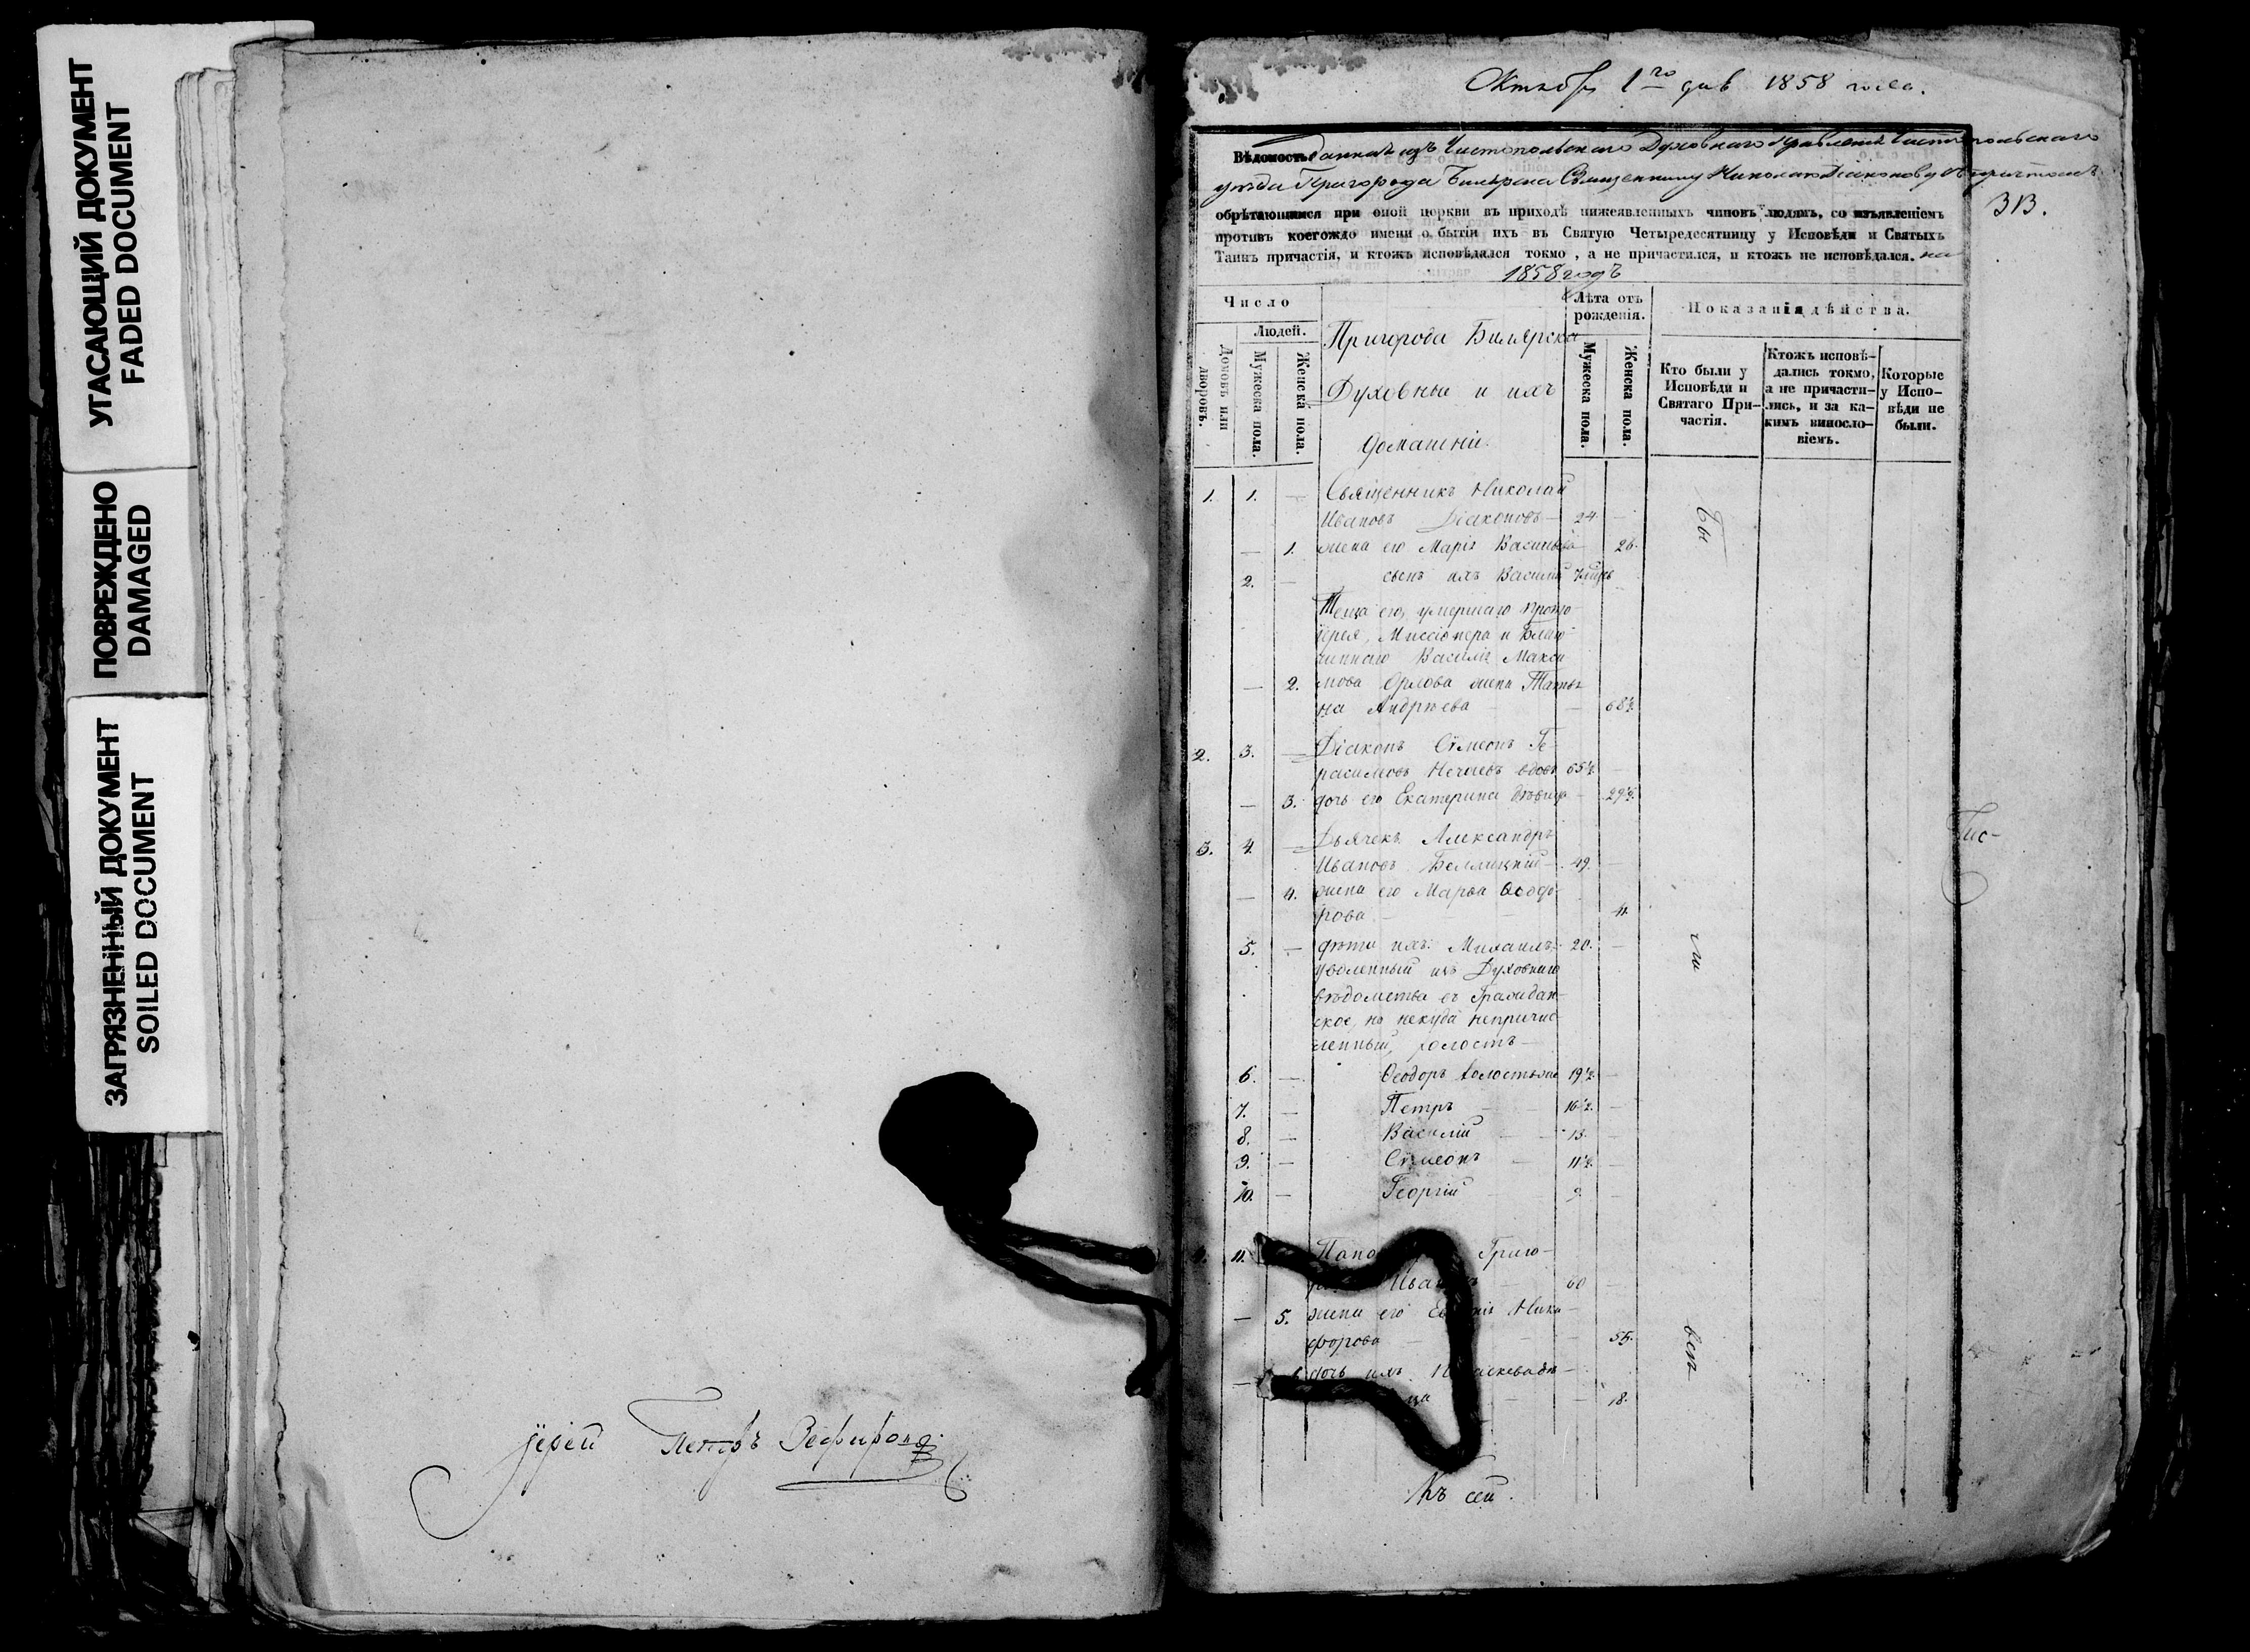 УГАСАЮЩИЙ ДОКУМЕНТ
FADED DOCUMENT
ПОВРЕЖДЕНО
DAMAGED
ЗАГРЯЗНЕННЫЙ ДОКУМЕНТ
SOILED DOCUMENT
Іерей Петръ
Октября 1го дня 1858 года.
Вѣдомость данная изъ Чистопольскаго Духовнаго Правленія Чистопольскаго
уѣзда Пригорода Билярска Священнику Николаю Діаконову съ причтомъ
313.
обрѣтающимся при оной церкви въ приходѣ нижеявленныхъ чиновъ людямъ, со изъявленіемъ
противъ коегождо имени о бытіи ихъ въ Святую Четыредесятницу у Исповѣди и Святыхъ
Таинъ причастія, и ктожъ исповѣдался токмо, а не причастился, и ктожъ не исповѣдался. на
1858 годъ
Число
Людей.
Домовъ или дворовъ.
Мужеска пола.
Женска пола.
Пригорода Билярска
Духовные и ихъ
домашніе.
Лѣта отъ рожденія.
Мужеска пола.
Женска пола.
Показанія дѣйства.
Кто были у Исповѣди и Святаго При-частія.
Ктожъ исповѣ-дались токмо, а не причасти-лись, и за ка-кимъ винослo-віемъ.
Которые у Испо-вѣди не были.
1. 1. — Священникъ Николай
Ивановъ Діаконовъ — 24. —
— 1. жена его Марія Васильева 26.
2. — сынъ ихъ Василій
Теща его, умершаго прото
іерея, Миссіонера и Благо
чиннаго Василія Макси
— 2. мова Орлова жена Татья
на Андреева — 68½.
2. 3. — Діаконъ Сѵмеонъ Ге-
расимовъ Нечаевъ вдовъ 65½. —
— 3. дочь его Екатерина дѣвица — 29½.
3. 4. — Дьячекъ Александръ
Ивановъ — 49. —
— 4. жена его Марья Ѳеодо
рова — 41.
5. — дѣти ихъ: Михаилъ, 20. —
уволенный изъ Духовнаго
вѣдомства въ Граждан-
ское, но некуда непричис
ленный, холостъ —
6. — Ѳеодоръ 19½. —
7. — Петръ — 16½. —
8. — Василій — 13. —
9. — Сѵмеонъ — 11½. —
10. — Георгій — 9. —
11. Григо-
60 —
— 5. жена его Ники-
форова — 55.
— дочь ихъ
18.
Бы
ли
всѣ
Къ сей
Пис-